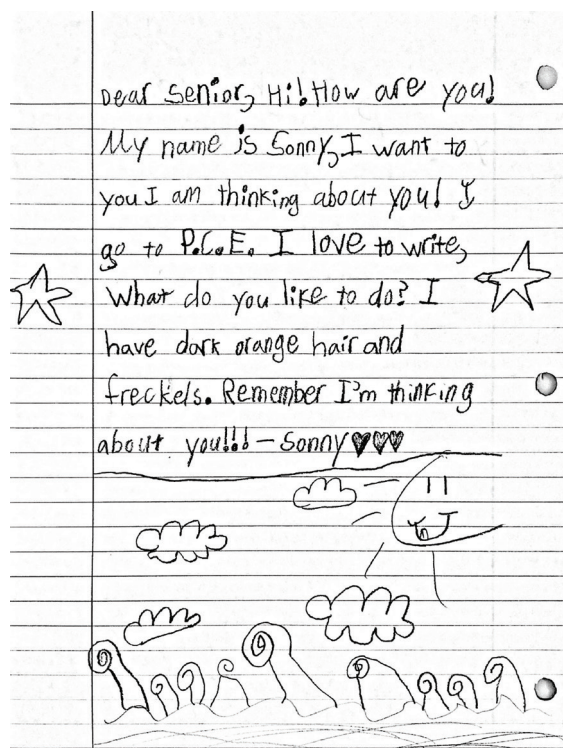 Dear Senior, Hi! How are you!
My name is Sonny, I want to
you I am thinking about you! I
go to P.C.E. I love to write,
What do you like to do? I
have dark orange hair and
freckels. Remember I'm thinking
about you!!! - Sonny ♥♥♥